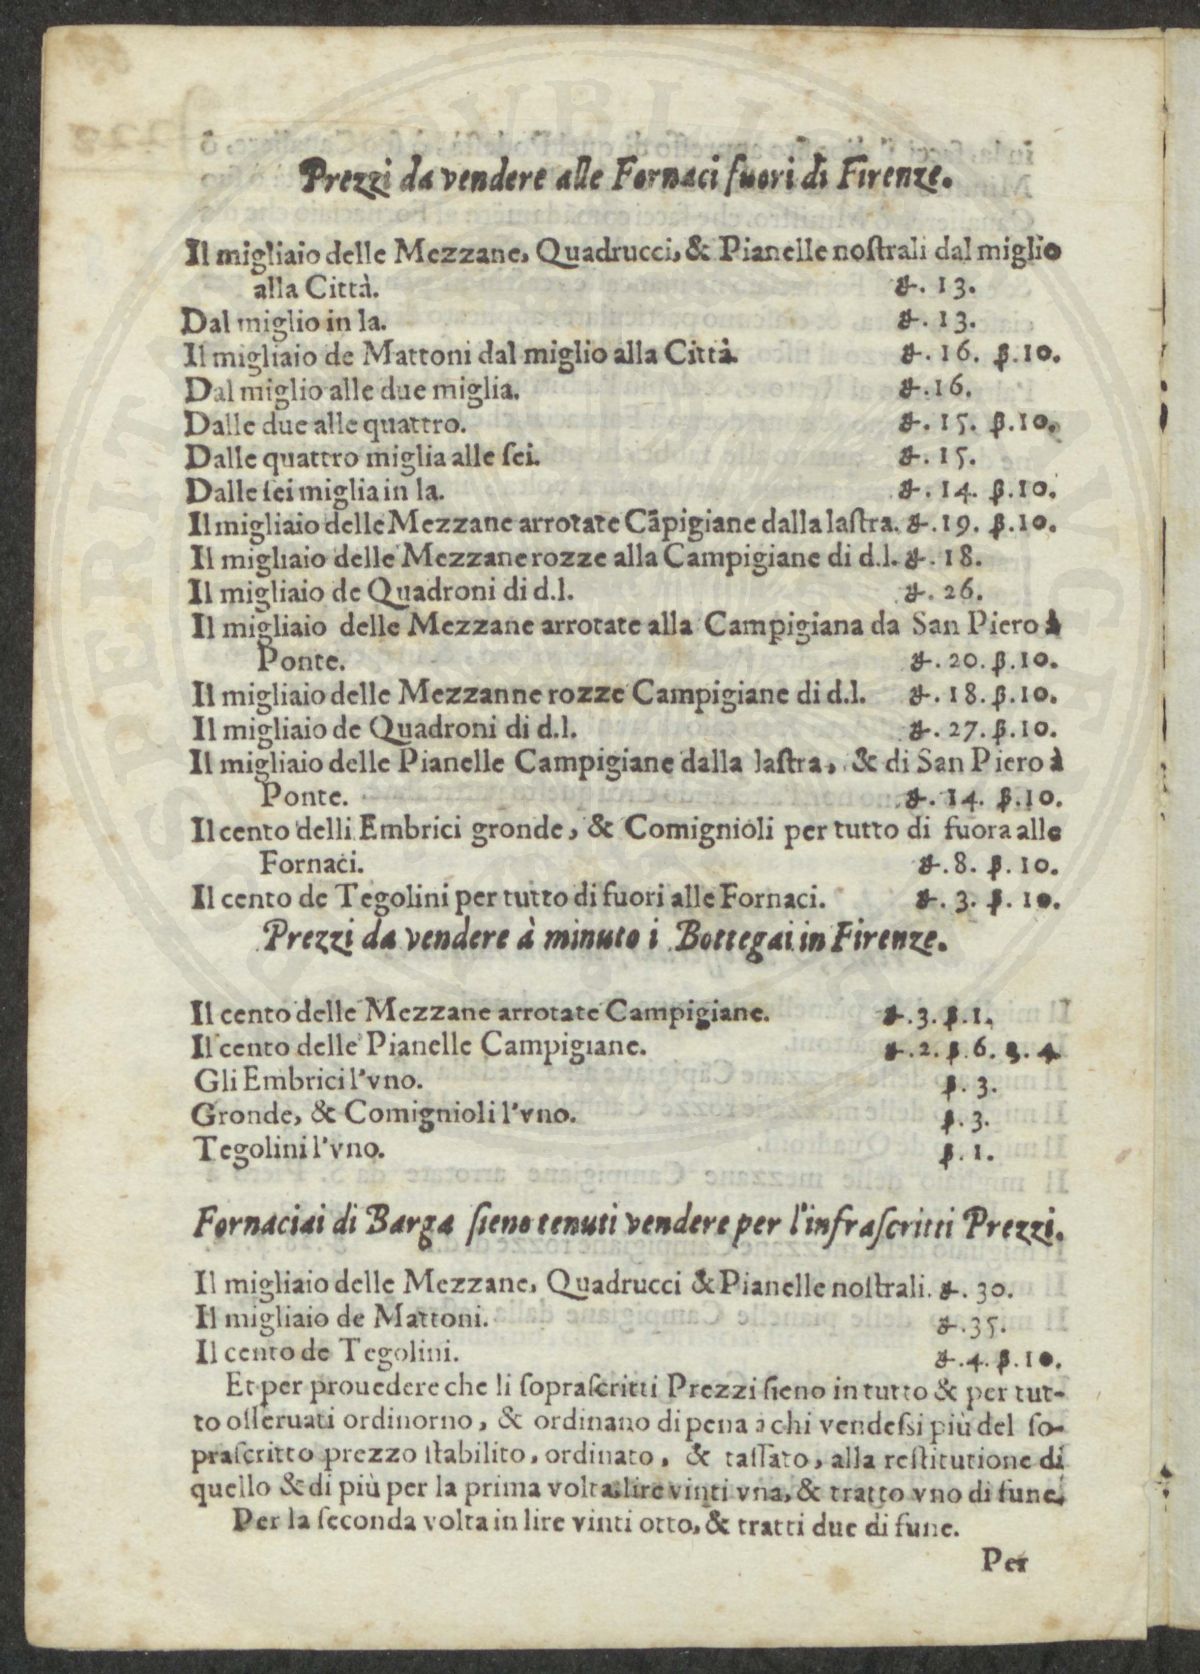 Prezzi da vendere alle Fornaci fuori di Firenze.
Il migliaio delle Mezzane, Quadrucci, & Pianelle nostrali dal miglio
alla Città. ₰. 13.
Dal miglio in la. ₰. 13.
Il migliaio de Mattoni dal miglio alla Città. ₰. 16. β. 10.
Dal miglio alle due miglia. ₰. 16.
Dalle due alle quattro. ₰. 15. β. 10.
Dalle quattro miglia alle sei. ₰. 15.
Dalle sei miglia in la. ₰. 14. β. 10.
Il migliaio delle Mezzane arrotate Cāpigiane dalla lastra. ₰. 19. β. 10.
Il migliaio delle Mezzane rozze alla Campigiane di d.l. ₰. 18.
Il migliaio de Quadroni di d.l. ₰. 26.
Il migliaio delle Mezzane arrotate alla Campigiana da San Piero à
Ponte. ₰. 20. β. 10.
Il migliaio delle Mezzanne rozze Campigiane di d.l. ₰. 18. β. 10.
Il migliaio de Quadroni di d.l. ₰. 27. β. 10.
Il migliaio delle Pianelle Campigiane dalla lastra, & di San Piero à
Ponte. ₰. 14. β. 10.
Il cento delli Embrici gronde, & Comignioli per tutto di fuora alle
Fornaci. ₰. 8. β. 10.
Il cento de Tegolini per tutto di fuori alle Fornaci. ₰. 3. β. 10.
Prezzi da vendere à minuto i Bottegai in Firenze.
Il cento delle Mezzane arrotate Campigiane. ₰. 3. β. 1.
Il cento delle Pianelle Campigiane. ₰. 2. β. 6. 3. 4
Gli Embrici l'vno. β. 3.
Gronde, & Comignioli l'vno. β. 3.
Tegolini l'vno. β. 1.
Fornaciai di Barga sieno tenuti vendere per l'infrascritti Prezzi.
Il migliaio delle Mezzane, Quadrucci & Pianelle nostrali. ₰. 30.
Il migliaio de Mattoni. ₰. 35.
Il cento de Tegolini. ₰. 4. β. 10.
Et per prouedere che li soprascritti Prezzi sieno in tutto & per tut-
to osseruati ordinorno, & ordinano di pena a chi vendessi più del so-
prascritto prezzo stabilito, ordinato, & tassato, alla restitutione di
quello & di più per la prima volta lire vinti vna, & tratto vno di fune.
Per la seconda volta in lire vinti otto, & tratti due di fune.
Per